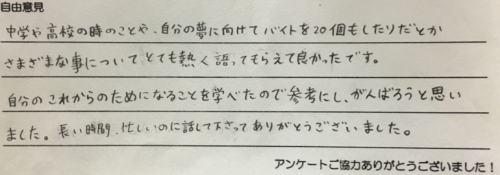 自由意見
中学や高校の時のことや、自分の夢に向けてバイトを20個もしたりだとか
さまざまな事について、とても熱く語ってもらえて良かったです。
自分のこれからのためになることを学べたので参考にし、がんばろうと思い
ました。長い時間、忙しいのに話して下さってありがとうございました。
アンケートご協力ありがとうございました！